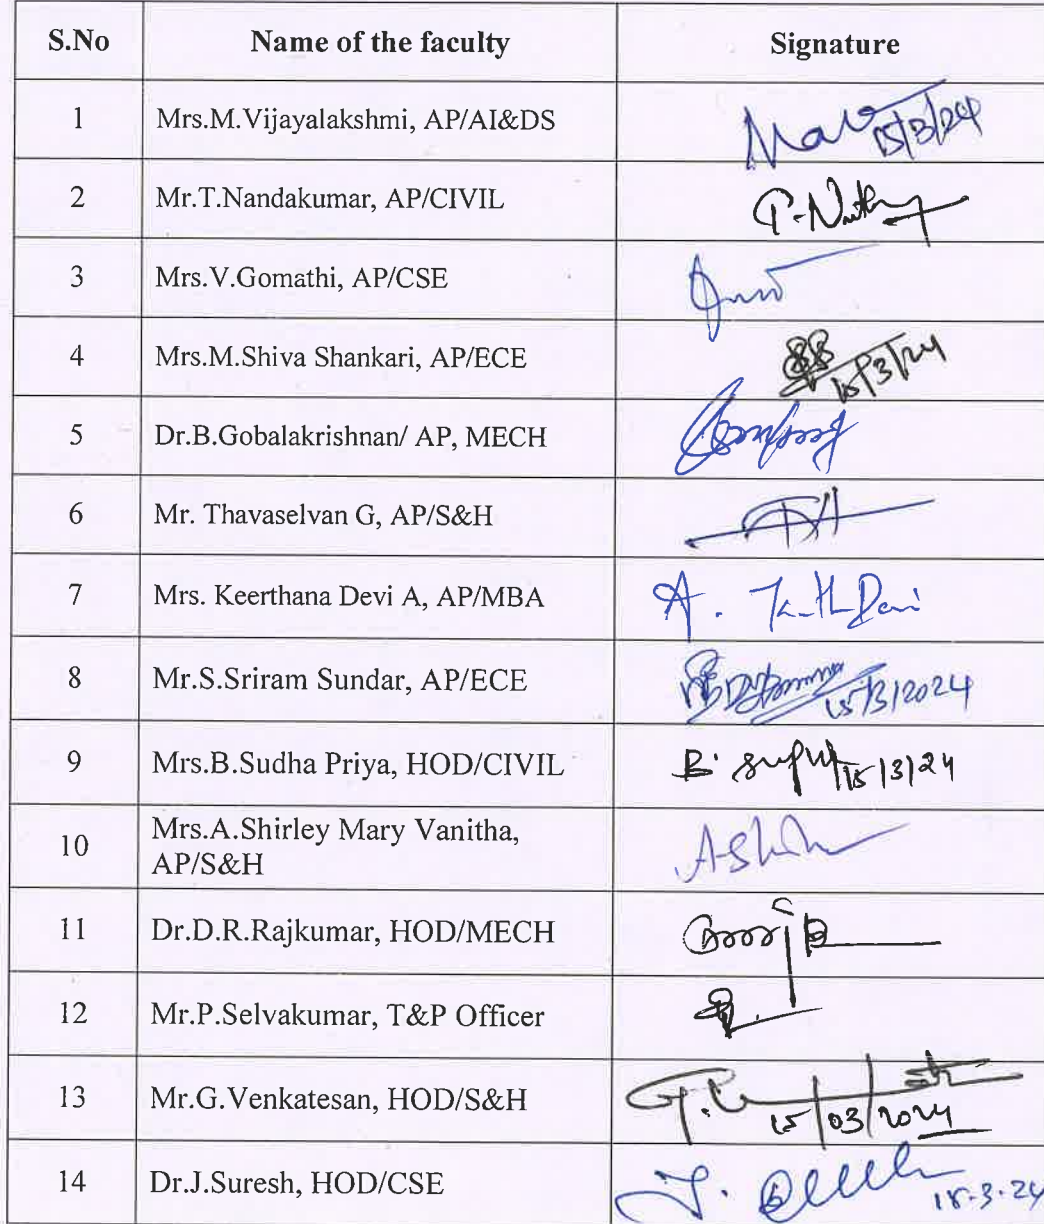 S.No Name of the faculty Signature
1 Mrs.M.Vijayalakshmi, AP/AI&DS 15/3/24
2 Mr.T.Nandakumar, AP/CIVIL
3 Mrs.V.Gomathi, AP/CSE
4 Mrs.M.Shiva Shankari, AP/ECE 15/3/24
5 Dr.B.Gobalakrishnan/ AP, MECH
6 Mr. Thavaselvan G, AP/S&H
7 Mrs. Keerthana Devi A, AP/MBA A.
8 Mr.S.Sriram Sundar, AP/ECE 15/3/2024
9 Mrs.B.Sudha Priya, HOD/CIVIL B. 15/3/24
10 Mrs.A.Shirley Mary Vanitha,
AP/S&H
11 Dr.D.R.Rajkumar, HOD/MECH
12 Mr.P.Selvakumar, T&P Officer
13 Mr.G.Venkatesan, HOD/S&H 15/03/2024
14 Dr.J.Suresh, HOD/CSE J.